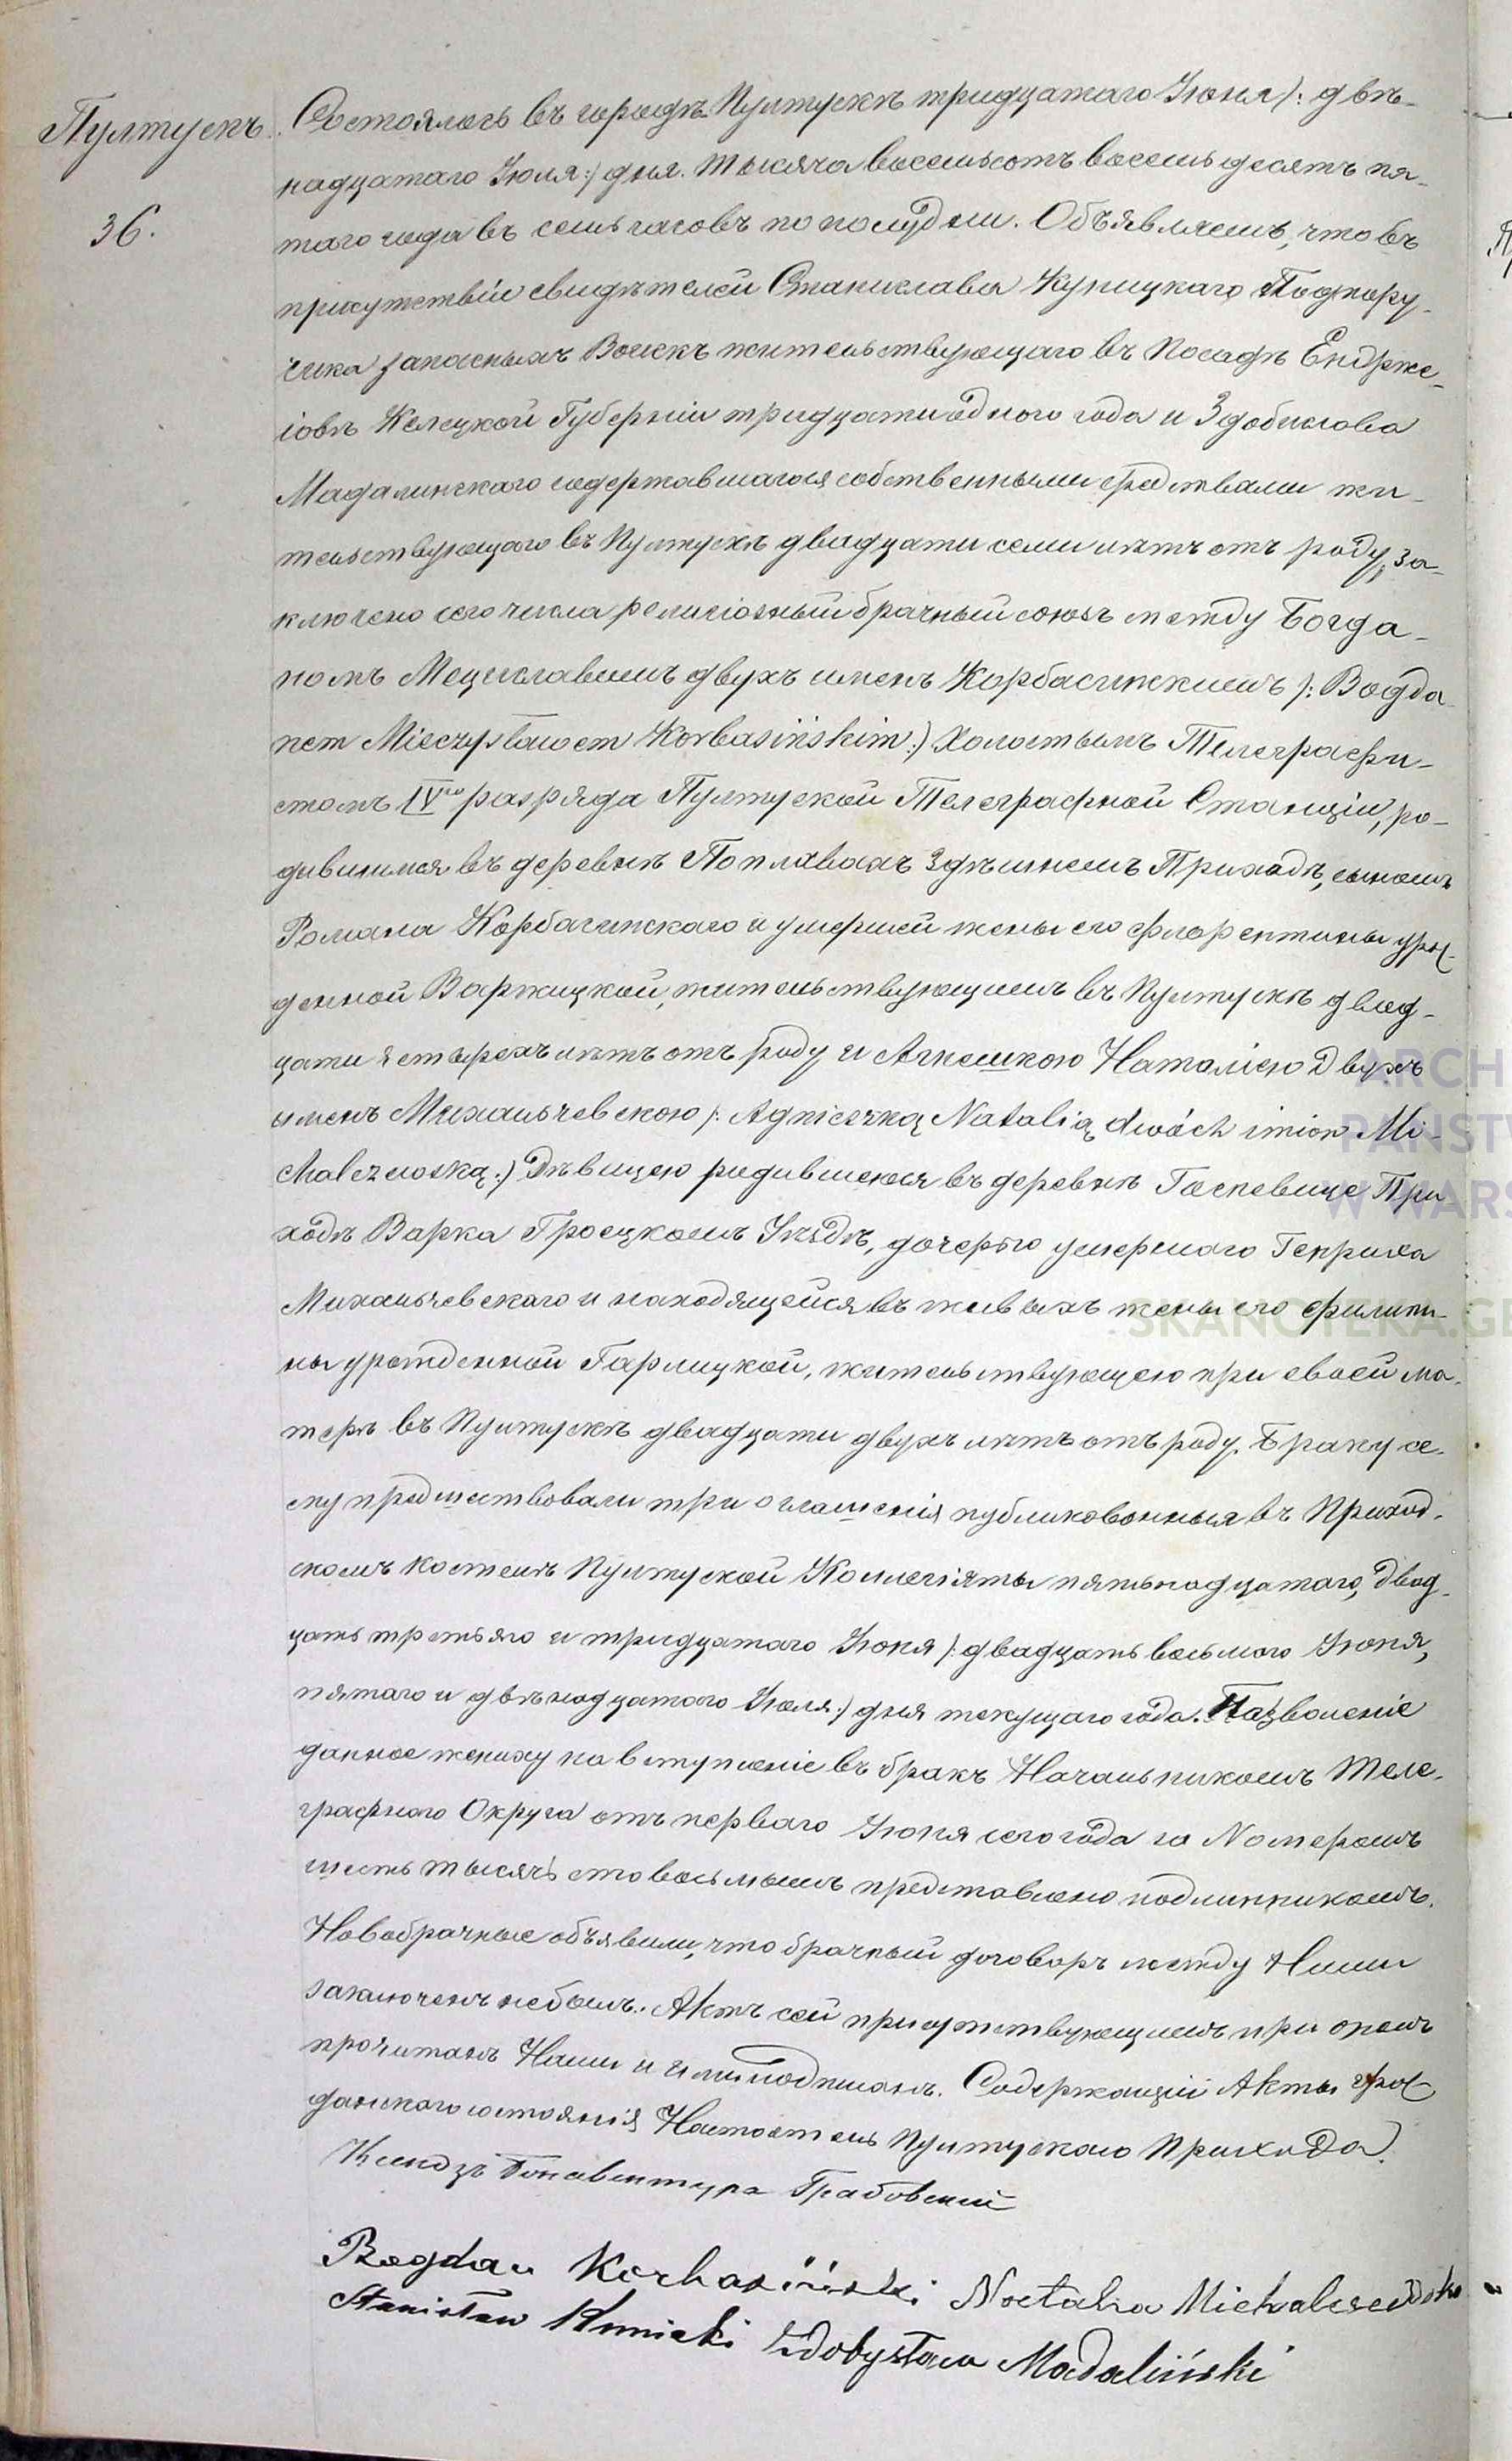 Пултускъ.
36.
Состоялось въ городѣ Пултускѣ тридцатаго Іюня /: двѣ-
надцатаго Іюля :/ дня. Тысяча восемьсотъ восемьдесятъ пя-
таго года въ семь часовъ по полудни. Объявляемъ, что въ
присутствіи свидѣтелей Станислава Куницкаго Подпору-
чика запасныхъ Войскъ жительствующаго въ Посадѣ Ендрже-
іовѣ Келецкой Губерніи тридцати одного года и Здобислава
Мадалинскаго содержавшагося собственными средствами жи-
тельствующаго въ Пултускѣ двадцати семи лѣтъ отъ роду, за-
ключено сего числа религіозный брачный союзъ между Богда-
номъ Мечиславомъ двухъ именъ Корбасинскимъ /: Bogda-
nem Mieczysławem Korbasińskim :/ Холостымъ Телеграфи-
стомъ IVго разряда Пултуской Телеграфной Станціи, ро-
дившимся въ деревнѣ Поплавахъ здѣшнемъ Приходѣ, сыномъ
Романа Корбасинскаго и умершей жены его Флорентины урож-
деннойВаржицкой, жительствующимъ въ Пултускѣ двад-
цати четырехъ лѣтъ отъ роду и Агнешкою Наталіею двухъ
именъ Михальчевскою /: Agnieszką Natalią dwóch imion Mi-
chalczewską :/ Дѣвицею родившеюся въ деревнѣ Гасневице При
ходѣ Варка Гроецкомъ Уѣздѣ, дочерью умершаго Генриха
Михальчевскаго и находящейся въ живыхъ жены его Филипи-
ны урожденной Гарлицкой, жительствующею при своей ма-
терѣ въ Пултускѣ двадцати двухъ лѣтъ отъ роду. Браку се-
му предшествовали три оглашенія публикованныя въ Приход-
скомъ Костелѣ Пултуской Коллегіяты пятьнадцатаго, двад-
цать третьяго и тридцатаго Іюня /: двадцать восьмого Іюня,
пятаго и двѣнадцатаго Іюля :/ дня текущаго года. Позволеніе
данное жениху на вступленіе въ бракъ Начальникомъ Теле-
графнаго Округа отъ перваго Іюня сего года за Номеромъ
шесть тысячъ сто восьмымъ представлено подлинникомъ.
Новобрачные объявили, что брачный договоръ между Ними
заключенъ небылъ. Актъ сей присутствующимъ при ономъ
прочитанъ Нами и ими подписанъ. Содержащій Акты граж-
данскаго состоянія Настоятель Пултускаго Прихода.
Ксендзъ Бонавентура Грабовскій
Bogdan Korbasiński Natalia Michalczewska
Stanisław Kunicki Zdobysław Madaliński
ARCH
PAŃSTW
W WARS
SKANOTEKA.GE